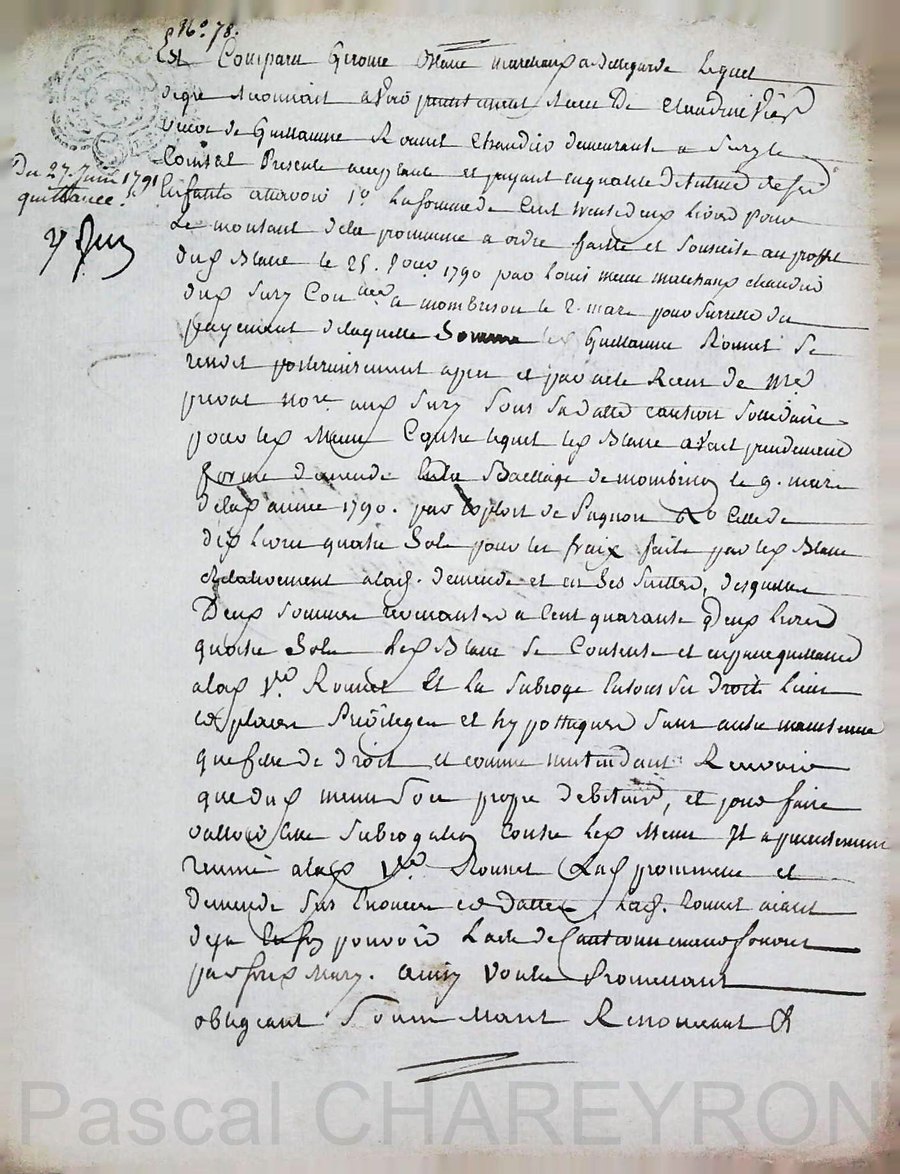 N.º 78.
Est Comparu Gerome Blanc marchand a Bellegarde lequel
de gré reconnoit avoir presentement Receu De Claudine Vier
veuve de Guillaume Ronnet Chandier demeurante a Sury le
Du 27. Juin 1791
quittance.
Comtal Presente acceptante et payant en qualité de tutrice de ses
Enfants assavoir 1º La somme de Cent trente deux livres pour
Le montant de la promesse a ordre faitte et souscrite au proffit
dud Blanc le 25. 1790 par Louis marchand
dud Sury Con a mombrison le 2. mars pour Surretté du
payement de laquelle Somme led Guillaume Ronnet se
rendit posterieurement apres et par acte Receu de Me
privat nore aud Sury Sous sa datte caution Sollidaire
pour led Contre lequel led Blanc avoit precedemment
formé demende en la Baillage de mombrison le 9. mars
de lad année 1790. par Exploit de Pugnon 2º Celle de
dix livres quatre Sols pour les fraix faits par led Blanc
Relativement a lad. demende et en ses suittes, desquelles
Deux sommes revenantes a Cent quarante Deux livres
quatre Sols led Blanc se Contente et en passe quittance
a lad Ve Ronnet Et la Subroge en tous ses Droits lieux
et places Privilèges et hypotteques Sans autre maintenue
que celle de Droit et comme n'entendant Recevoir
que dud propre debiteur, et pour faire
valloir cette Subrogation Contre led Il a presentement
remis a lad Ve Ronnet Lad promesse et
demende sus Enoncée et dattée, Lad. Ronnet aiant
deja pouvoir L'acte de Cautionnement
par Mary. ainsy Voulu Promettant
obligeant Soummettant Renonceant &
Pascal CHAREYRON